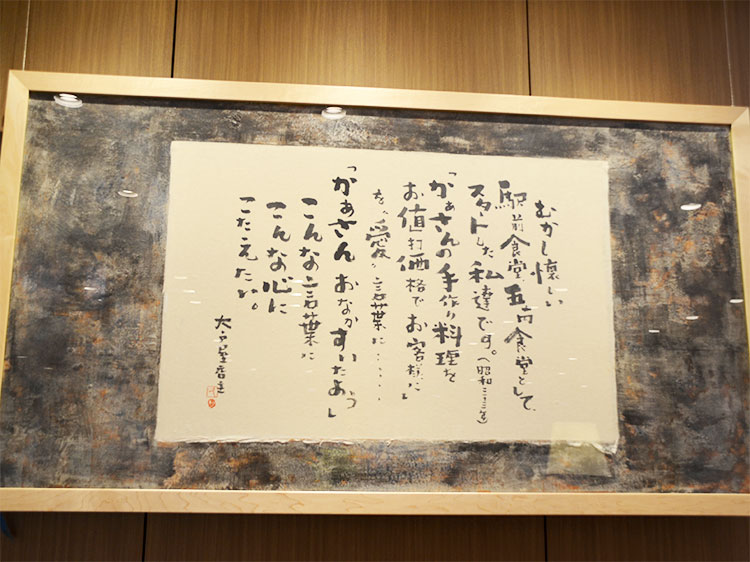 むかし懐しい
駅前食堂、五十円食堂として、
スタートした私達です。(昭和三十三年)
「かあさんの手作り料理を
お値打価格でお客様に」
を〝愛〟言葉に・・・・・・
「かぁさん おなかすいたよう」
こんな言葉に
こんな心に
こたえたい。
大戸屋店主